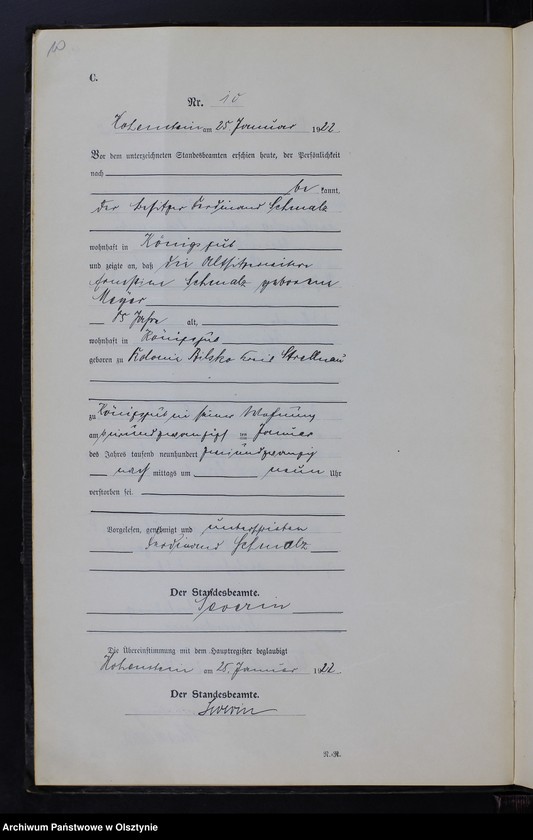 10
C.
Nr. 10
Hohenstein am 25. Januar 1922
Vor dem unterzeichneten Standesbeamten erschien heute, der Persönlichkeit
nach
be kannt,
der Besitzer Ferdinand Schmalz
wohnhaft in Königsgut
und zeigte an, daß die Altsitzerwitwe
Schmalz geborene
Meyer
85 Jahre alt,
wohnhaft in Königsgut
geboren zu Kolonie Kreis Strellnau
zu Königsgut in seiner Wohnung
am zwanzigst en Januar
des Jahres tausend neunhundert zweiundzwanzig
nach mittags um neun Uhr
verstorben sei.
Vorgelesen, genehmigt und unterschrieben
Ferdinand Schmalz
Der Standesbeamte.
Severin
Die Übereinstimmung mit dem Hauptregister beglaubigt
Hohenstein am 25. Januar 1922.
Der Standesbeamte.
Severin
R./R.
Archiwum Państwowe w Olsztynie